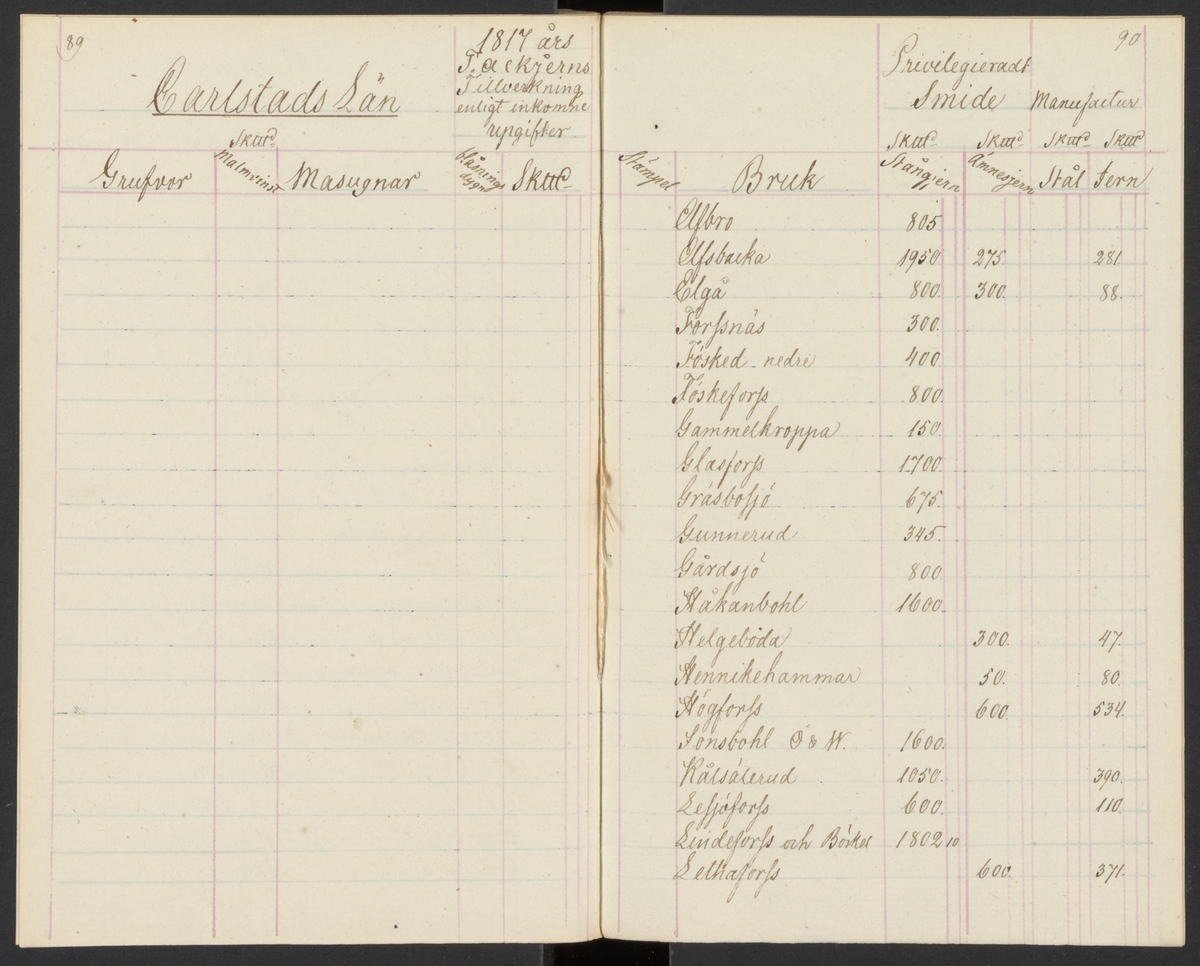 89
Carlstads Län
1817 års
Tackjerns
Tillverkning
enligt inkomne
upgifter
Skttd
Grufvor Malmvinst Masugnar blåsnings dygn Skttd
90
Privilegieradt
Smide Manufactur
Skttd Skttd Skttd Skttd
Stämpel Bruk Stångjern Ämnesjern Stål Jern
Elfbro 805
Elfsbacka 1950. 275 281
Elgå 800. 300. 88.
Forssnäs 300.
Fösked nedre 400.
Föskeforss 800.
Gammelkroppa 150.
Glasforss 1700.
Gräsbosjö 675.
Gunnerud 345.
Gårdsjö 800
Håkanbohl 1600.
Helgeboda 300. 47.
Hennikehammar 50. 80.
Högforss 600. 534.
Jonsbohl Ö & W. 1600.
Kålsäterud 1050. 390.
Lesjöforss 600. 110.
Lindeforss och 1802 10
600. 371.